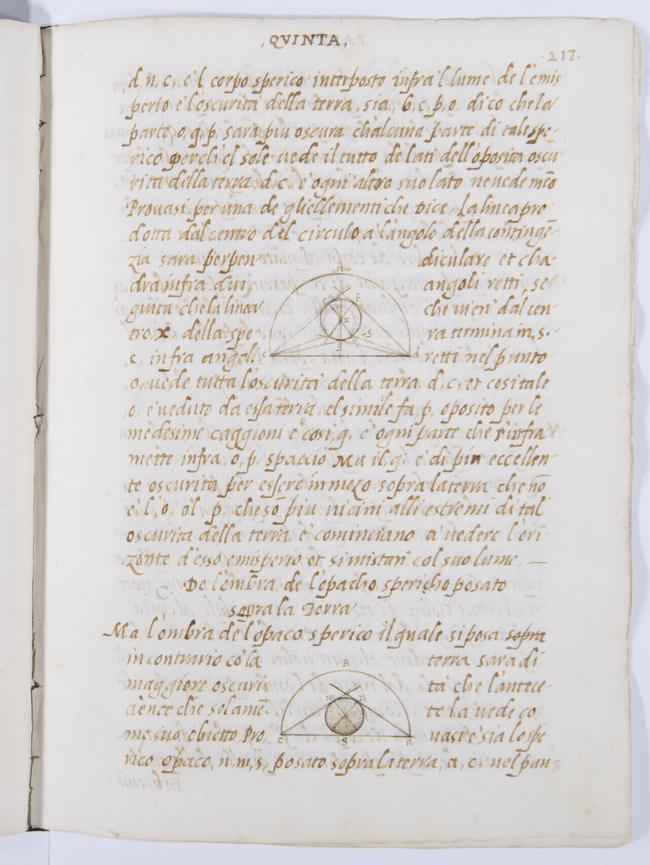 ,QVINTA,
217.
d, n, c, e 'l corpo sperico interposto infra 'l lume de l'emis
perio e l'oscurita della terra, sia, b, c, p, o, dico che la
parte, o, q, p, sara piu oscura ch alcuna parte di tal spe-
rico perche 'l sole vede il tutto de lati dell oposita oscu
rita della terra, d, c, e ogni altro suo lato ne vede mēo
Provasi per una de gl'ellementi che dice. La linea pro
dotta dal centro del circulo, a l'angolo della contingē-
zia sara perpen diculare et cha
dra infra dui angoli retti, se
guita che la linea che vien' dal cen
tro, x, della spe ra termina in, s,
c, infra angoli retti nel punto
o, vede tutta l'oscurita della terra, d, c, et cosi tale
o, e' veduto da essa terra, el simile fa, p, oposito per le
medesime caggioni e cosi, q, e ogni parte che s'infra
mette infra, o, p, spaccio Ma il, q, e di piu eccellen-
te oscurita per essere in mezo sopra la terra che nō
e l', o, o l', p, che sō piu vicini alli estremi di tal
oscurita della terra e' cominciano a' vedere l'ori
zonte d'esso emisperio et si mistan' col suo lume, —
De l'ombra de l'opacho spericho posato
sopra la Terra
Ma l'ombra de l'opaco sperico il quale si posa sopra
in contrario cō la terra sara di
maggiore oscuri ta che l'antece-
dente che solamē te la vede co
me suo obietto, Pro vasi e sia lo spe
rico opaco, n, m, s, posato sopra la terra, a, c, nel pun-
n
x
S
m n
S